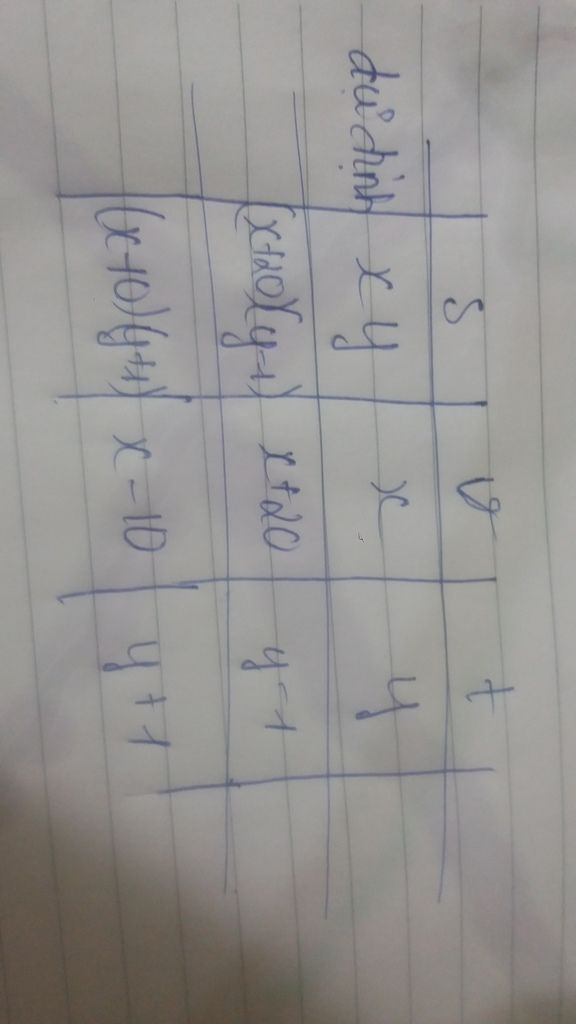 S v t
dự định xy x y
(x+20)(y-1) x+20 y-1
(x-10)(y+1) x-10 y+1